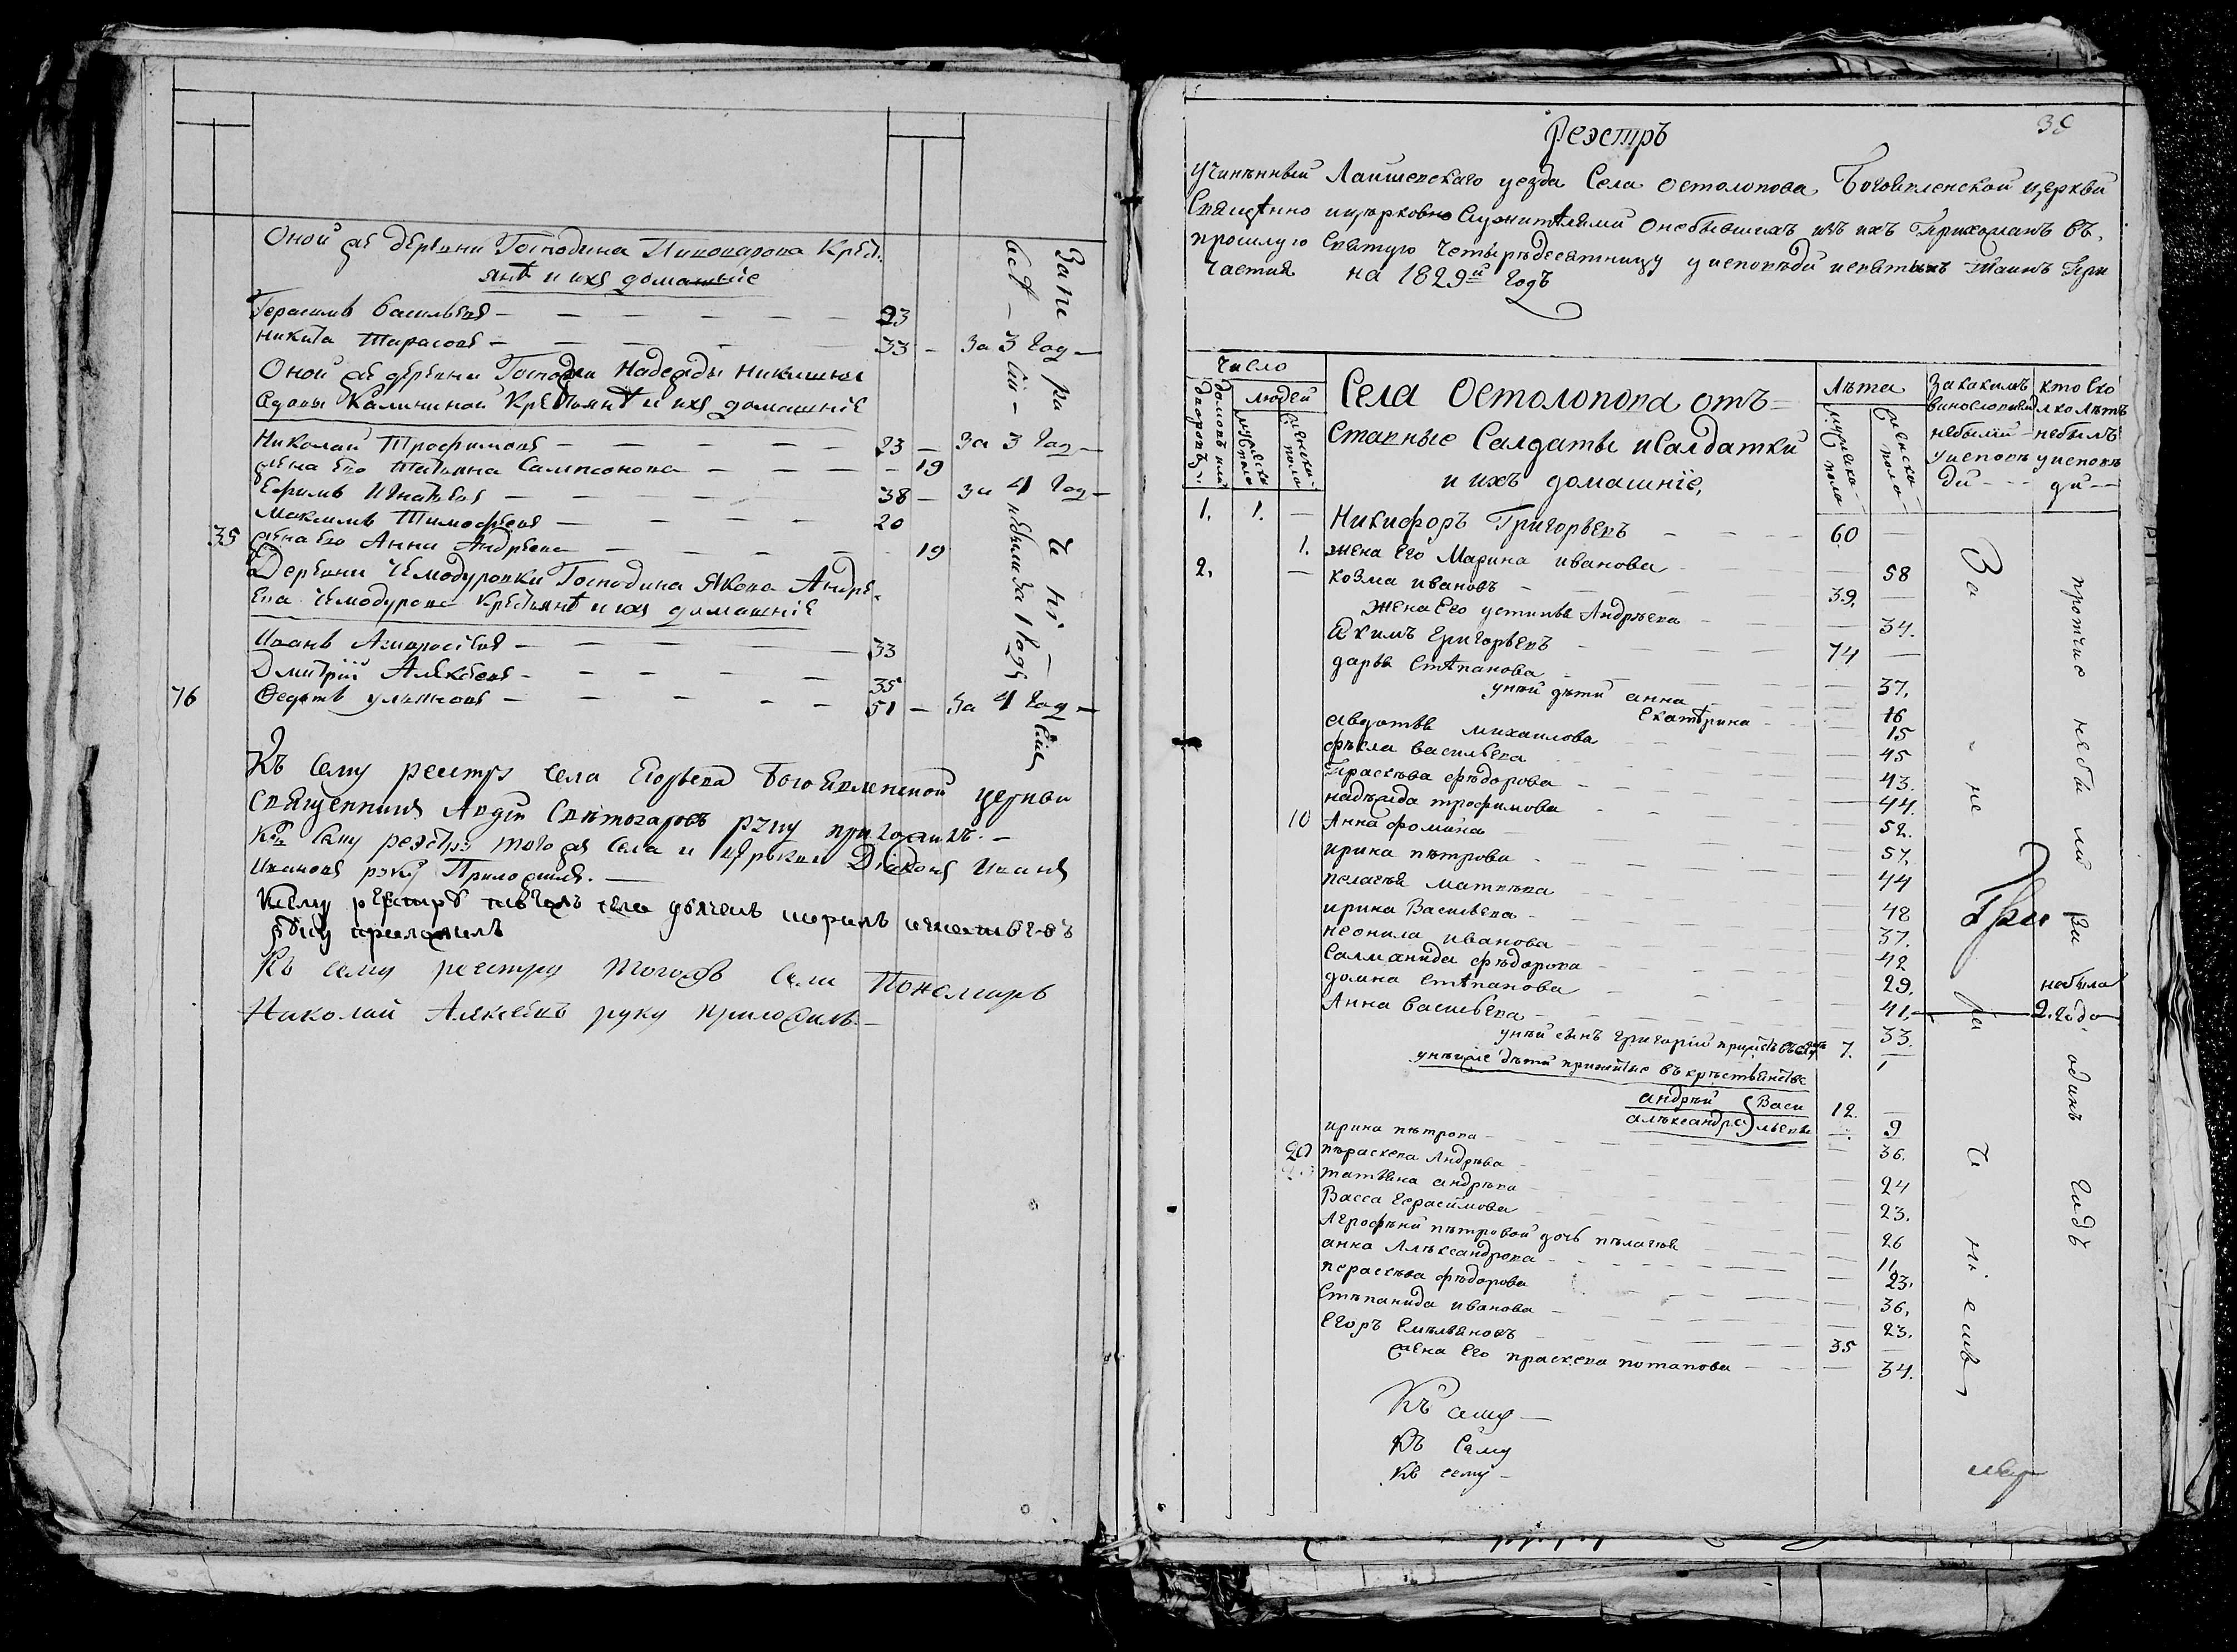 Оной же деревни Господина Кресть
янъ и ихъ домашніе
Герасимъ Васильевъ — 23
Никита Тарасовъ — 33 — за 3 год —
Оной же деревни Госпожи Надежды Никишны
вдовы Калининой Крестьянъ и ихъ домашніе
Николай Трофимовъ — 23 — за 3 год —
жена его Татьяна Сампсонова — 19
Ефимъ Игнатьевъ — 38 — за 4 год —
Максимъ Тимофеевъ — 20
35 жена его Анна Андреева — 19
Деревни Чемодуровки Господина Якова Андре
ева Чемодурова Крестьянъ и ихъ домашніе
Иванъ Амвросіевъ — 33
Дмитрій Алексеевъ — 35
76 Федотъ — 51 — за 4 год —
небыли за 1 годъ
Къ сему реестру села Егорьева Богоявленской церкви
священникъ руку приложилъ. —
Къ сему реэстру того же села и церькви Діаконъ Иванъ
Ивановъ руку Приложилъ. —
руку приложилъ
Къ сему реестру тогожъ села Пономарь
Николай Алексеевъ руку приложилъ. —
39
Реэстръ
Учиненный Лаишевскаго уезда Села Остолопова Богоявленской церкви
Священно и церковно Служителями онебывшихъ изъ ихъ Прихожанъ въ
прошлую святую четыредесятницу уисповѣди исвятыхъ Таинъ При
частия на 1829й годъ
Число
дворовъ
домовъ или
людей
мужеска
женска пола
Села Остолопова отъ=
ставные Салдаты исалдатки
и ихъ домашніе,
лѣта
мужеска пола
женска пола
Закакимъ
винословіемъ
небыли
уиспове
ди
кто Ско
лко лѣтъ
небылъ
уиспове
ди
1. 1. — Никифоръ Григорьевъ — 60 —
1. жена его Марина иванова — 58
2. — козма ивановъ — 39. —
жена его устинья Андрѣева — 34.
Акимъ Григорьевъ — 74 —
дарья степанова — 37.
унѣй дѣти анна — 16
екатерина — 15
авдотья михаилова — 45
фѣкла васильева — 43.
Праскѣва фѣдорова — 44.
надѣжда трофимова — 52.
10 Анна фомина — 57.
ирина пѣтрова — 44
пелагѣя матвѣва — 48
ирина Васильева — 37.
неонила иванова — 42
Салманида фѣдорова — 29.
домна степанова — 41. — небыла 2. года
Анна васильева — 33.
унѣй сынъ григорій 7. —
унѣйже дѣти прижитые въ крѣстьянстве 1
андрѣй Васи 12. —
алѣксандра льевы — 9
ирина пѣтрова — 36.
20 пѣраскева Андрѣва — 24
татьяна андрѣва — 23.
Васса Герасимова — 26
Агрофѣни пѣтровой дочь пѣлагѣя — 11
анна Алѣксандрова — 23.
перасквва фѣдорова — 36.
Стѣпанида иванова — 23.
Егоръ Емѣльяновъ — 35 —
жена его праскева потапова — 34.
За не ра че ні емъ
протчие небы ли ви одинъ годъ
Къ сему —
Къ Сему
Къ сему —